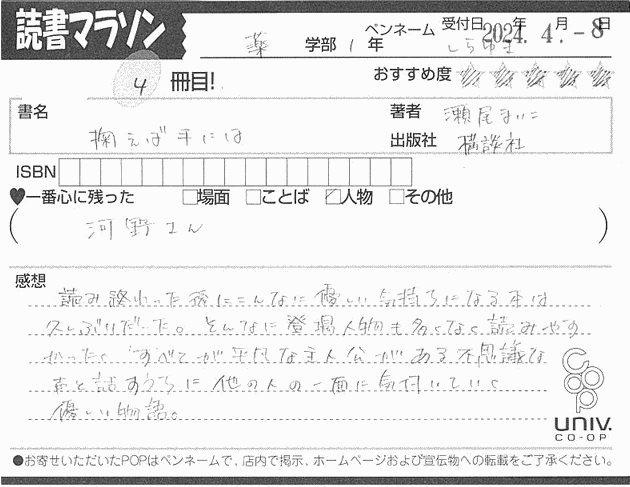 読書マラソン
薬 学部 1 年
ペンネーム しらゆき
受付日 2024年 4.月 -8日
4 冊目!
おすすめ度 ☆☆☆☆☆
書名
掬えば手には
著者 瀬尾まいこ
出版社 講談社
ISBN
♥一番心に残った □場面 □ことば ☑人物 □その他
( 河野さん )
感想
読み終わった後にこんなに優しい気持ちになる本は
久しぶりだった。そんなに登場人物も多くなく読みやす
かった。すべてが平凡な主人公がある不思議な
声と話すうちに他の人の一面に気付いていく
優しい物語。
coop
UNIV.
CO-OP
●お寄せいただいたPOPはペンネームで、店内で掲示、ホームページおよび宣伝物への転載をご了承ください。